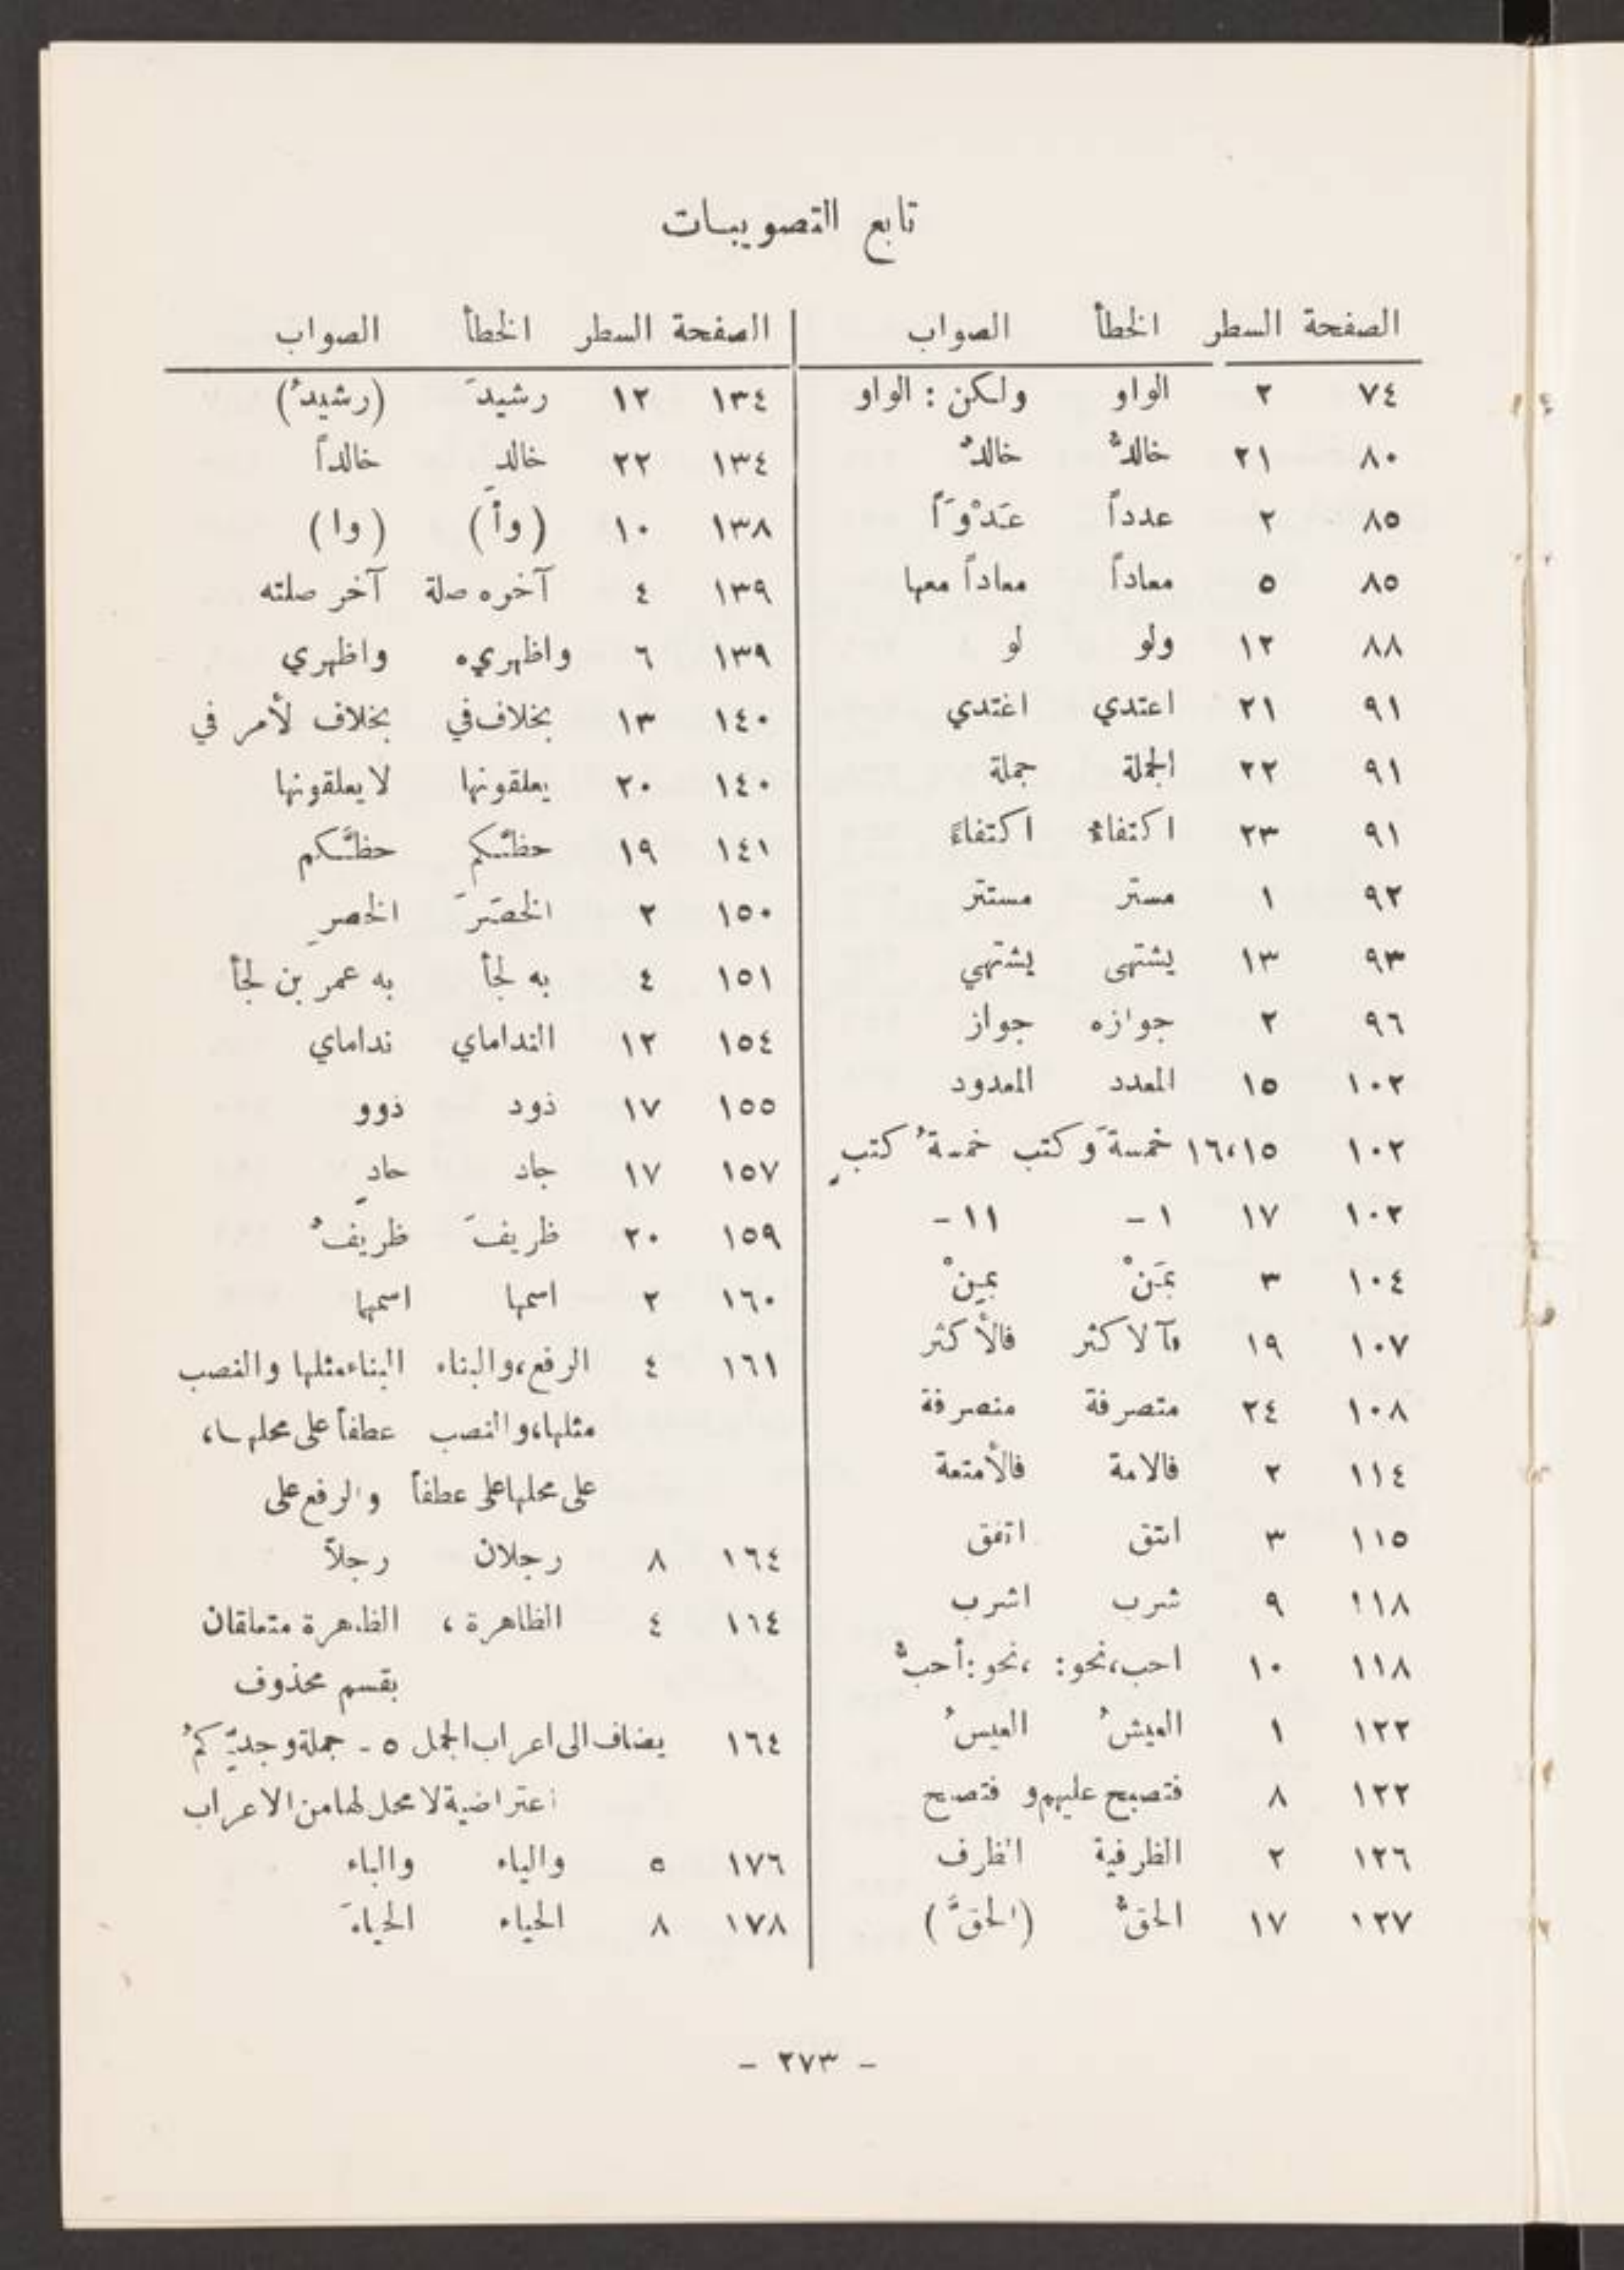 تابع التصويبات
الصفحة السطر الخطأ الصواب
٧٤ ٢ الواو ولكن : الواو
٨٠ ٢١ خالدٌّ خالدٌ
٨٥ ٢ عدداً عَدْوَاً
٨٥ ٥ معاداً معاداً معها
٨٨ ١٢ ولو لو
٩١ ٢١ اعتدي اغتدي
٩١ ٢٢ الجملة جملة
٩١ ٢٣ اكتفاءٌ اكتفاءً
٩٢ ١ مستر مستتر
٩٣ ١٣ يشتهى يشتهي
٩٦ ٢ جوازه جواز
١٠٢ ١٥ المعدد المعدود
١٠٢ ١٦،١٥ خمسةَ وكتب خمسةُ كتبٍ
١٠٢ ١٧ ١ - ١١ -
١٠٤ ٣ بمَنْ بمِينْ
١٠٧ ١٩ فآلاكثر فالأكثر
١٠٨ ٢٤ متصرفة منصرفة
١١٤ ٢ فالامة فالأمتعة
١١٥ ٣ اتتق اتفق
١١٨ ٩ شرب اشرب
١١٨ ١٠ احب،نحو: ،نحو:أحبُّ
١٢٢ ١ العيشُ العيسُ
١٢٢ ٨ فتصبح عليهم و فتصبح
١٢٦ ٢ الظرفية الظرف
١٢٧ ١٧ الحقُّ (الحقَّ)
الصفحة السطر الخطأ الصواب
١٣٤ ١٢ رشيدَ (رشيدُ)
١٣٤ ٢٢ خالدٍ خالداً
١٣٨ ١٠ (وأَ) (وا)
١٣٩ ٤ آخره صلة آخر صلته
١٣٩ ٦ واظهريه واظهري
١٤٠ ١٣ بخلاف في بخلاف لأمر في
١٤٠ ٢٠ يعلقونها لا يعلقونها
١٤١ ١٩ حظُّكم حظَّكم
١٥٠ ٢ الخصَرَ الخصرِ
١٥١ ٤ به لجأ به عمر بن لجأ
١٥٤ ١٢ النداماي نداماي
١٥٥ ١٧ ذود ذوو
١٥٧ ١٧ جاد حادٍ
١٥٩ ٢٠ ظريفَ ظريفُ
١٦٠ ٢ اسمها اسمهما
١٦١ ٤ الرفع،والبناء البناء مثلها والنصب
مثلها،والنصب عطفاً على محلها،
على محلها على عطفاً والرفع على
١٦٤ ٨ رجلان رجلاً
١٦٤ ٤ الظاهرة ، الظاهرة متعلقان
بقسم محذوف
١٦٤ يضاف الى اعراب الجمل ٥ - جملة وجديِّكمُ
اعتراضية لا محل لها من الاعراب
١٧٦ ٥ والياء والباء
١٧٨ ٨ الحياء الحياةَ
- ٢٧٣ -